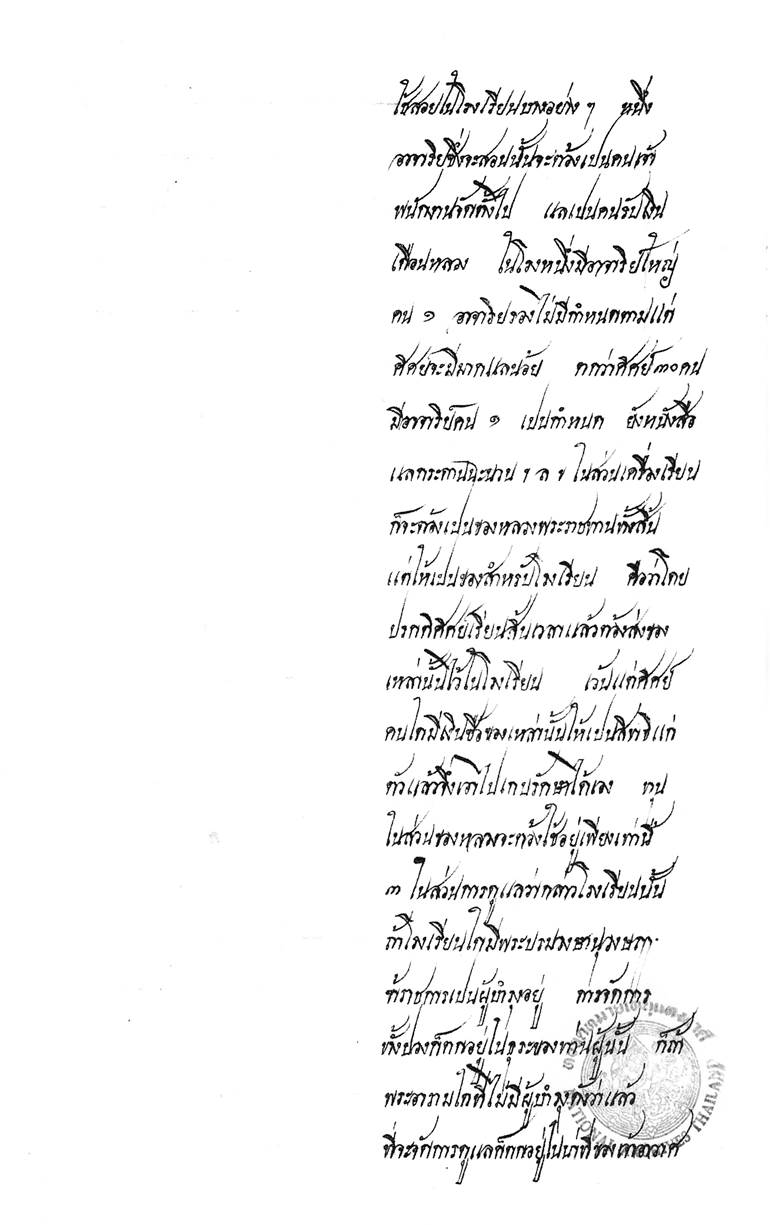 ใช้สอยในโรงเรียนบางอย่าง ๆ หนึ่ง
อาจาริยซึ่งจะสอนนั้นจะต้องเปนคนเจ้า
พนักงานจัดตั้งไป แลเปนคนรับเงิน
เดือนหลวง ในโรงหนึ่งมีอาจาริยใหญ่
คน ๑ อาจาริยรองไม่มีกำหนดตามแต่
ศิศย์จะมีมากแลน้อย คกว่าศิศย์ ๓๐ คน
มีอาจาริย์คน ๑ เปนกำหนด ยังหนังสือ
แลกระดานชะนวน ฯ ล ฯ ในส่วนเครื่องเรียน
ก็จะต้องเปนของหลวงพระราชทานทั้งสิ้น
แต่ให้เปนของสำหรับโรงเรียน คือว่าโดย
ปรกติศิศย์เรียนสิ้นเวลาแล้วต้องส่งของ
เหล่านั้นไว้ในโรงเรียน เว้นแต่ศิศย์
คนใดมีเงินซื้อของเหล่านั้นให้เปนสิทธิแก่
ตัวแล้วจึ่งเอาไปเกบรักษาได้เอง ทุน
ในส่วนของหลวงจะต้องใช้อยู่เพียงเท่านี้
๓ ในส่วนการดูแลว่ากล่าวโรงเรียนนั้น
ถ้าโรงเรียนใดมีพระบรมวงษานุวงษฤา
ข้าราชการเปนผู้บำรุงอยู่ การจัดการ
ทั้งปวงก็ตกอยู่ในธุระของท่านผู้นั้น ก็ถ้า
พระอารามใดที่ไม่มีผู้บำรุงดังว่าแล้ว
ที่จะจัดการดูแลก็ตกอยู่ในน่าที่ของเจ้าอาวาศ
NATIONAL ARCHIVES THAILAND